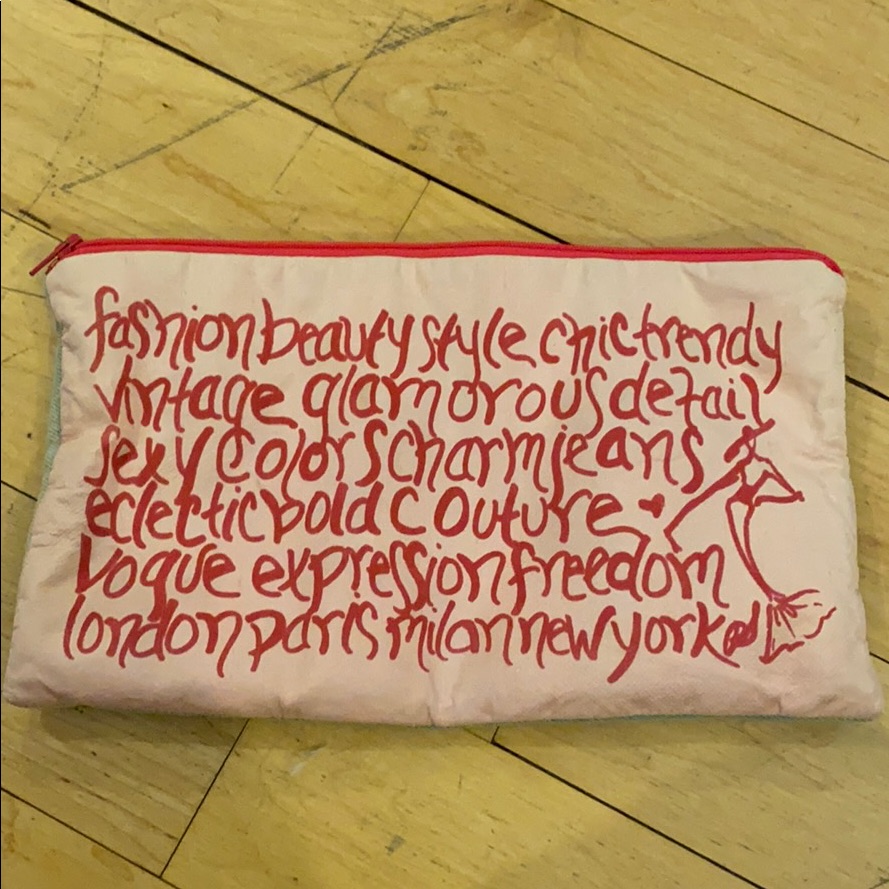 fashion beauty style chic trendy
vintage glamorous detail
sexy colors charm jeans
eclectic bold couture
vogue expression freedom
london paris milan new york